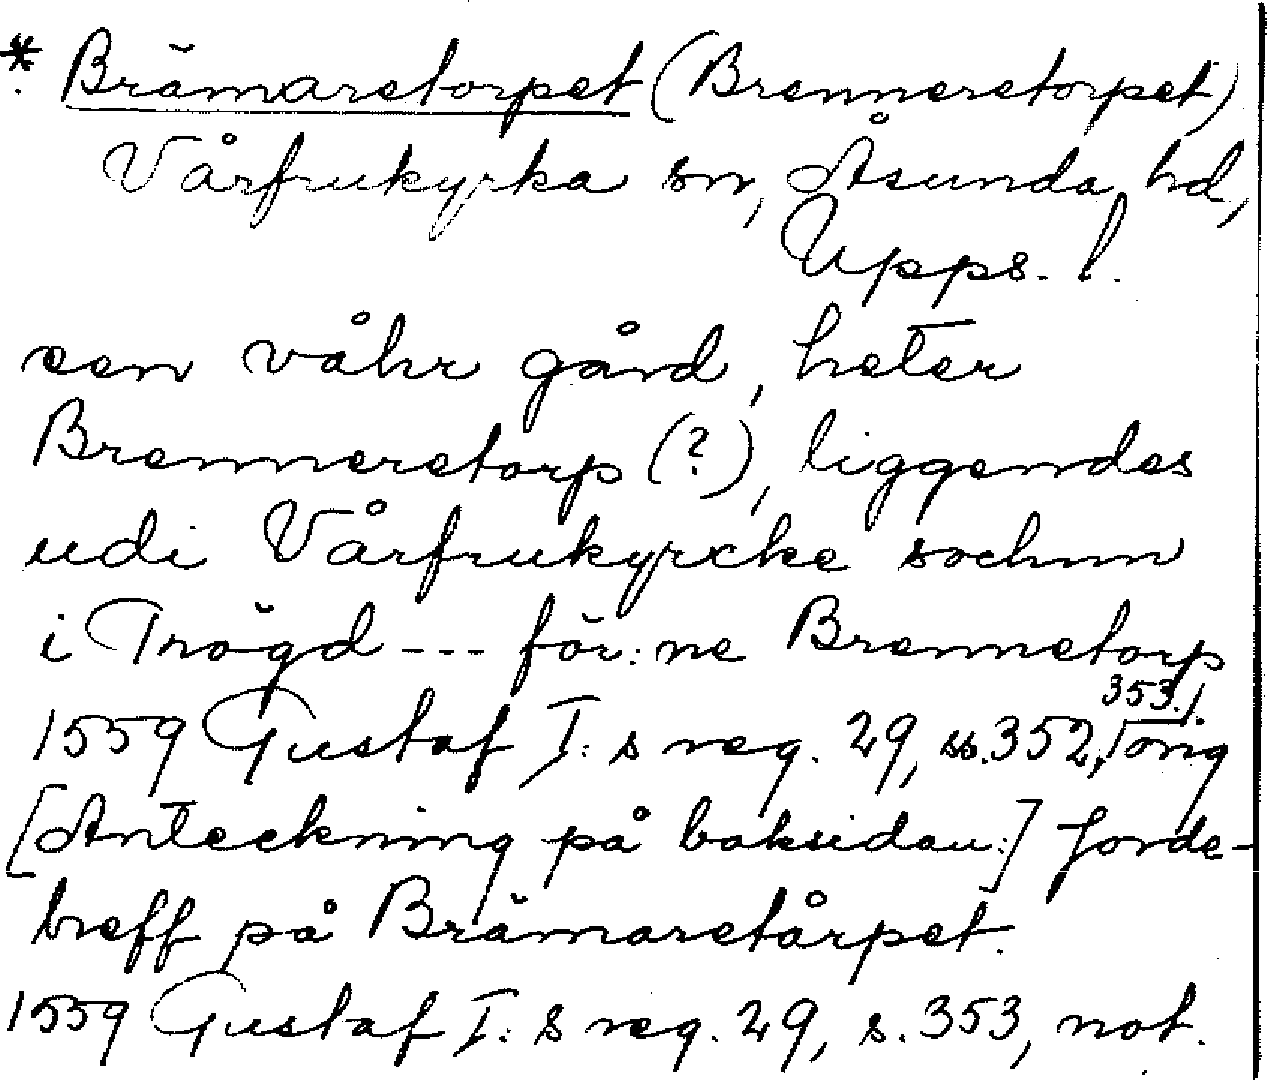 * Brämaretorpet (Brenneretorpet)
Vårfrukyrka sn, Åsunda hd,
Upps. l.
een våhr gård, heter
Brenneretorp (?), liggendes
udi Vårfrukyrcke sochnn
i Trögd --- för:ne Brennetorp
353.
1559 Gustaf I:s reg. 29, ss. 352, orig
[Anteckning på baksidan:] Jorde-
breff på Brämaretårpet.
1559 Gustaf I:s reg. 29, s. 353, not.